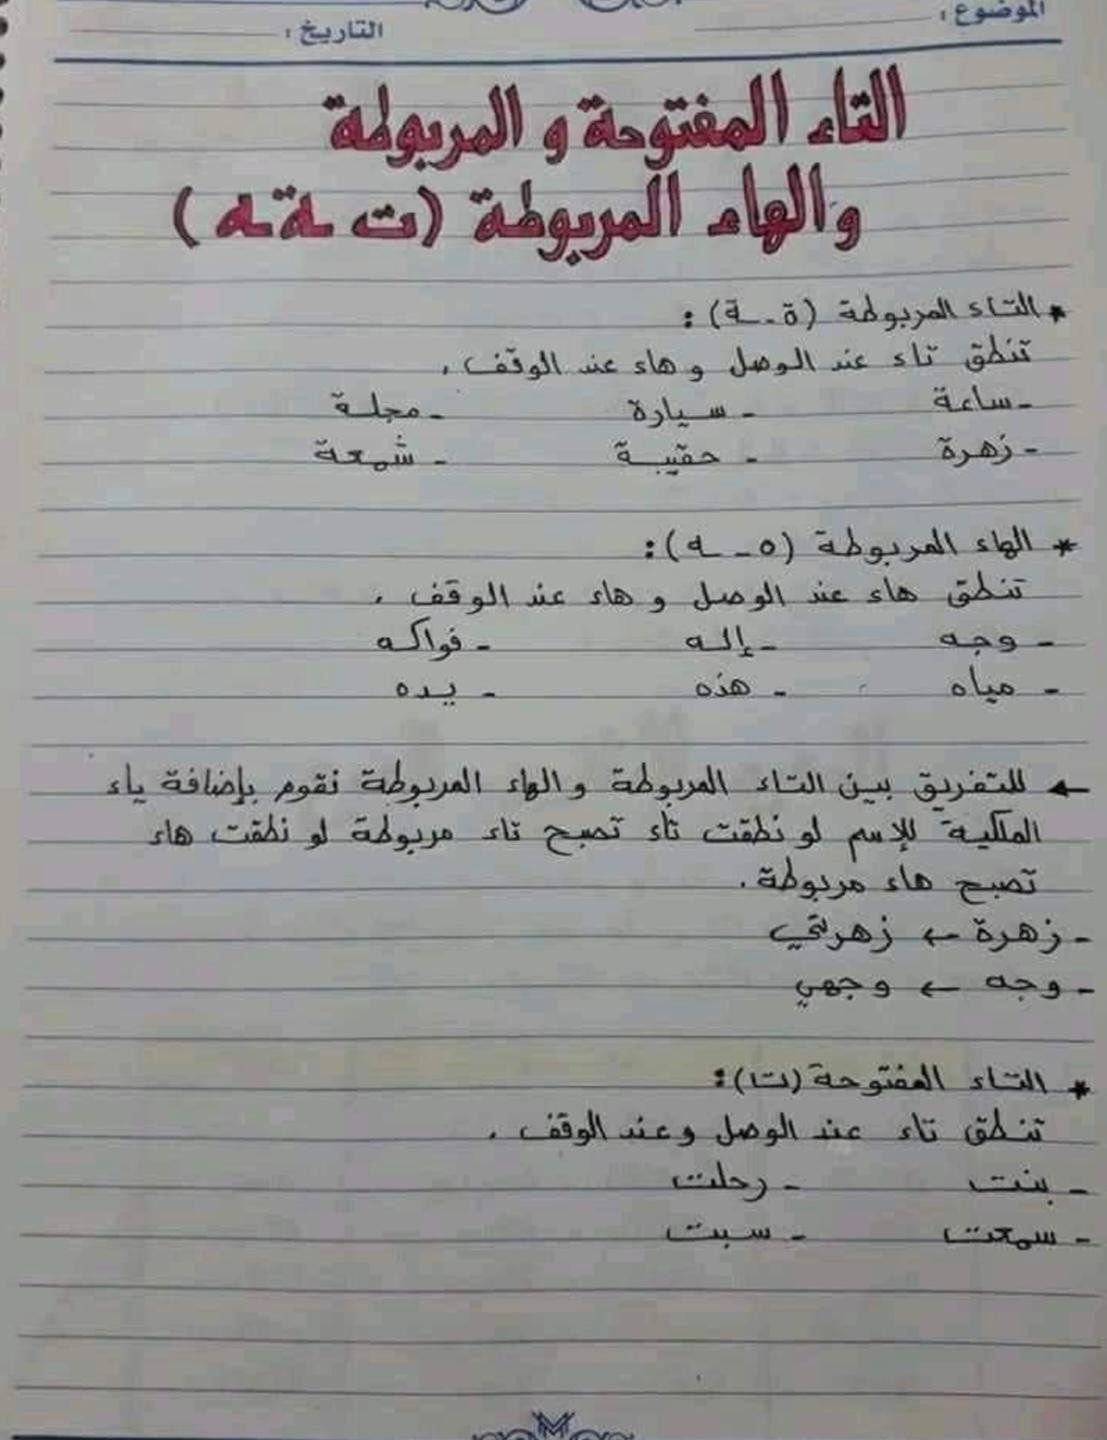 الموضوع :
التاريخ :
التاء المفتوحة و المربوطة
والهاء المربوطة (ت ـة ـه)
* التاء المربوطة (ة - ـة) :
تنطق تاء عند الوصل و هاء عند الوقف .
- ساعة - سيارة - مجلة
- زهرة - حقيبة - شمعة
* الهاء المربوطة (ه - ـه) :
تنطق هاء عند الوصل و هاء عند الوقف .
- وجه - إله - فواكه
- مياه - هذه - يده
← للتفريق بين التاء المربوطة و الهاء المربوطة نقوم بإضافة ياء
الملكية للإسم لو نطقت تاء تصبح تاء مربوطة لو نطقت هاء
تصبح هاء مربوطة .
- زهرة ← زهرتي
- وجه ← وجهي
* التاء المفتوحة (ت) :
تنطق تاء عند الوصل وعند الوقف .
- بنت - رحلت
- سمعت - سبت